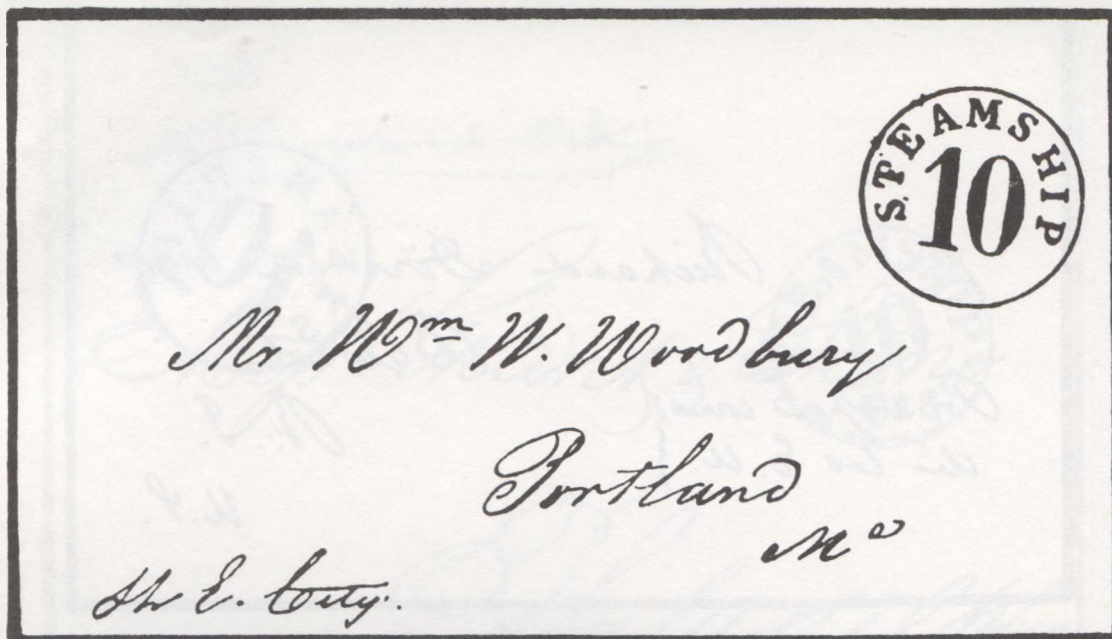 STEAMSHIP
10
Mr Wm W. Woodbury
Portland
Me
E. City.